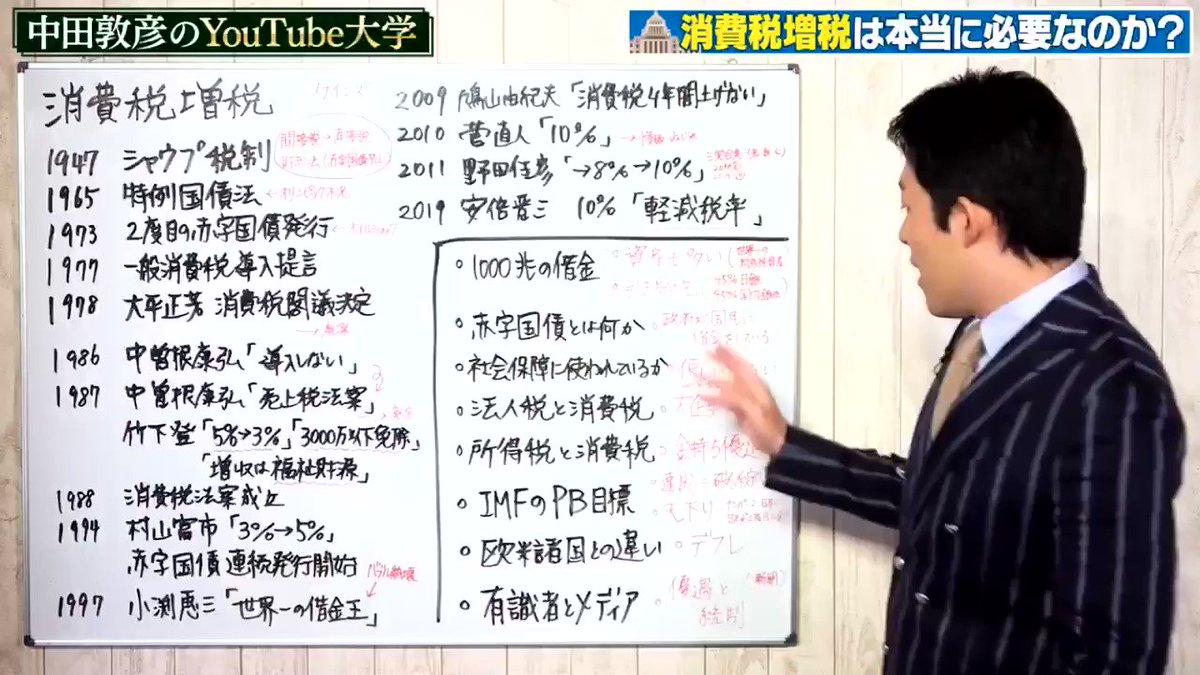 中田敦彦のYouTube大学
消費税増税は本当に必要なのか?
消費税増税
1947 シャウプ税制
1965 特例国債法
1973 2度目の赤字国債発行
1977 一般消費税導入提言
1978 大平正芳 消費税閣議決定
1986 中曽根康弘「導入しない」
1987 中曽根康弘「売上税法案」
竹下登「5%→3%」「3000万以下免除」
「増収は福祉財源」
1988 消費税法案成立
1994 村山富市「3%→5%」
赤字国債連続発行開始
バブル崩壊
1997 小渕恵三「世界一の借金王」
2009 鳩山由紀夫「消費税4年間上げない」
2010 菅直人「10%」
2011 野田佳彦「→8%→10%」
2019 安倍晋三 10%「軽減税率」
・1000兆の借金
・赤字国債とは何か
・社会保障に使われているか
・法人税と消費税
・所得税と消費税
・IMFのPB目標
・欧米諸国との違い ・デフレ
・有識者とメディア ・優遇と統制